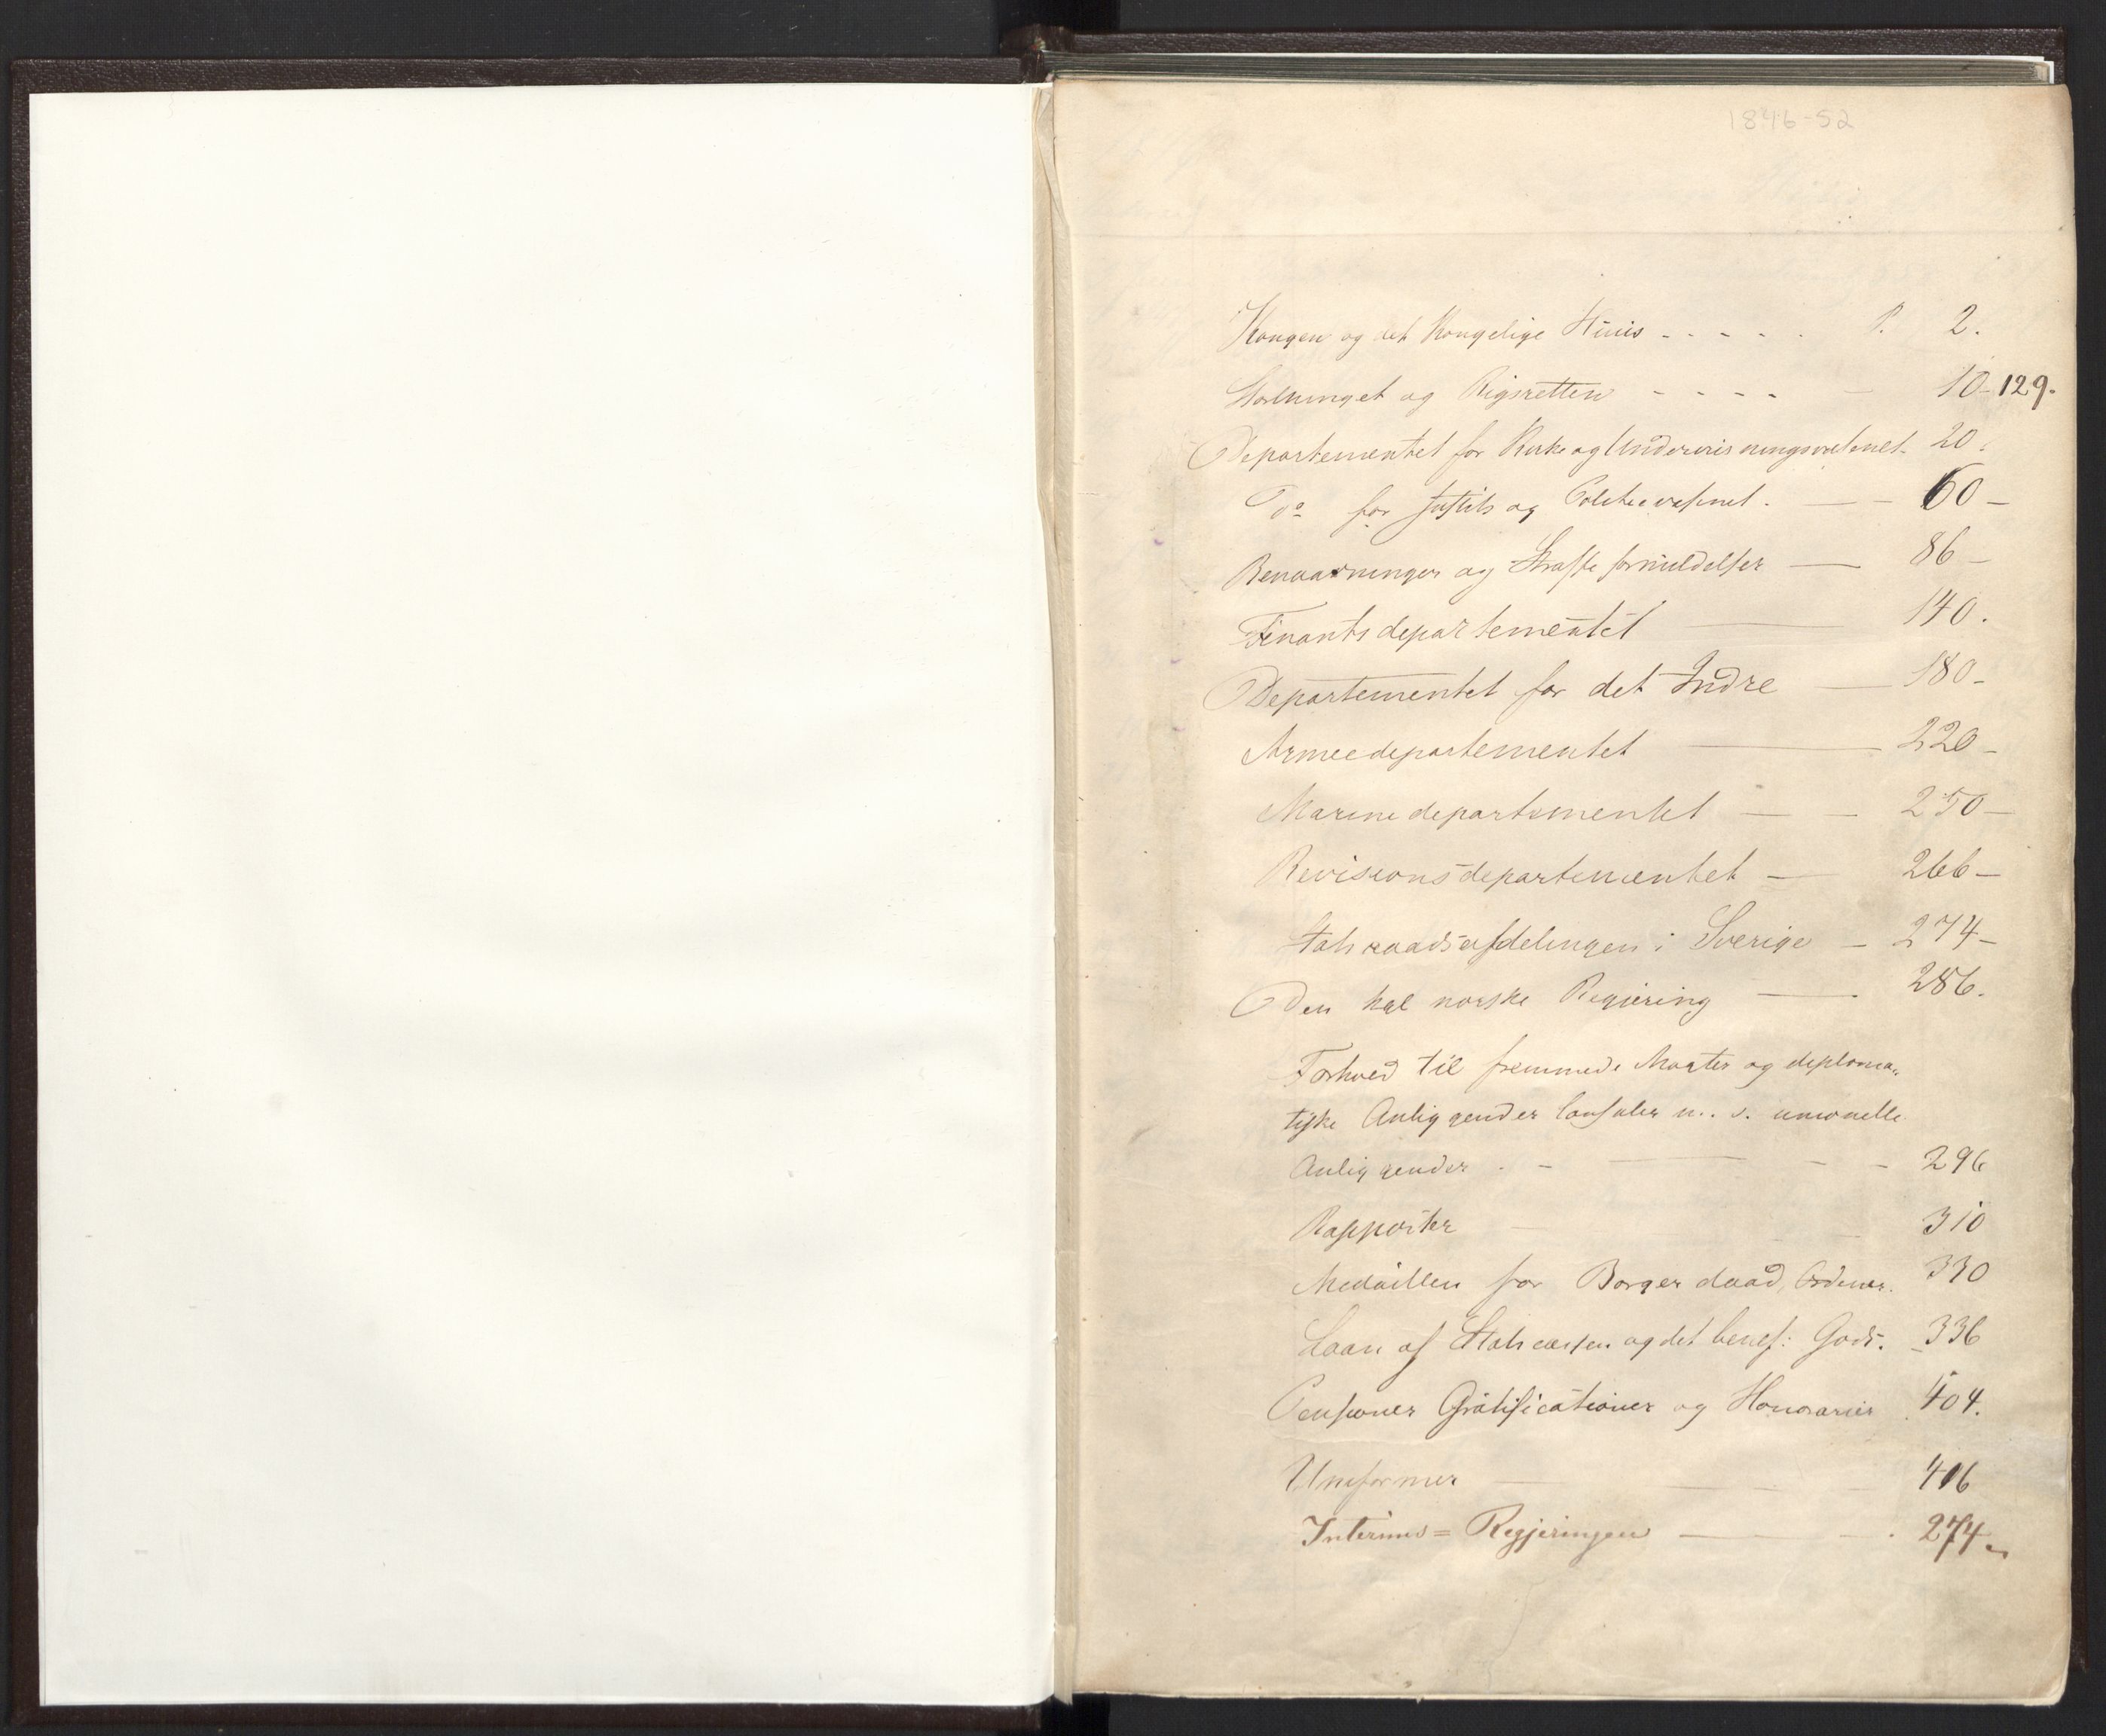 1846-52
Kongen og det Kongelige Huus - - - - - P. 2.
Storthinget og Rigsretten - - - - — 10-129.
Departementet for Kirke og Underviisningsvæsenet - 20.
Do for Justits og Politievæsenet. — — 60 —
Benaadninger og Straffeformildelser — 86 —
Finantsdepartementet — 140.
Departementet for det Indre — 180 -
Armeedepartementet — 220 -
Marinedepartementet — — 250 —
Revisionsdepartementet — 266 —
Statsraadsafdelingen i Sverige — 274 -
Den kgl norske Regjering — 286.
Forhold til fremmede Magter og diploma-
tiske Anliggender Consuler m. v. unionelle
Anliggender - - — - - 296
Rapporter — 310
Medaillen for Borgerdaad, Ordener. 330
Laan af Statscassen og det benef: Gods. 336
Pensioner Gratificationer og Honorarier 404.
Uniformer — — 416
Interims=Regjeringen — . 274 -